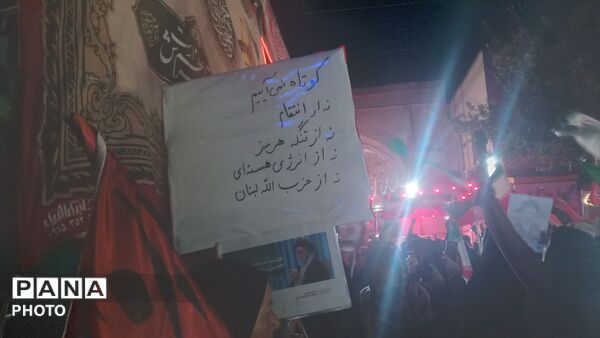 کوتاه نمی‌آییم
نه از انتقام
نه از تنگه هرمز
نه از انرژی هسته‌ای
نه از حزب الله لبنان
PANA
PHOTO